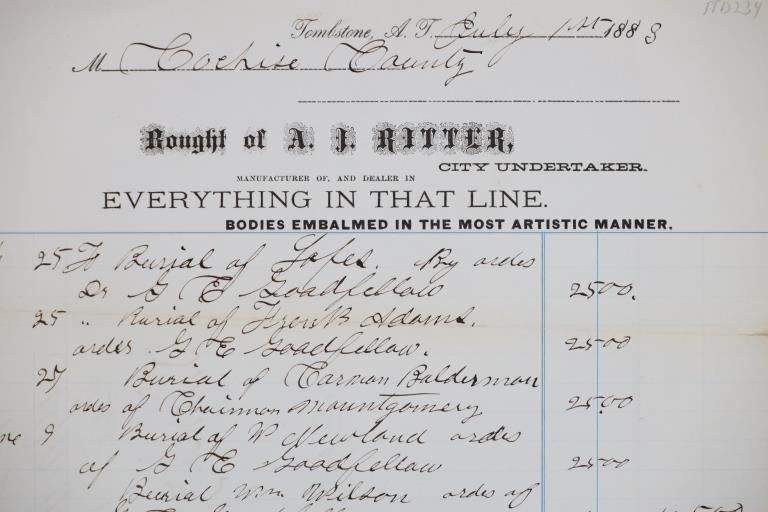 ITD234
Tombstone, A. T. July 1st 1883
M Cochise County
Bought of A. J. RITTER,
CITY UNDERTAKER.
MANUFACTURER OF, AND DEALER IN
EVERYTHING IN THAT LINE.
BODIES EMBALMED IN THE MOST ARTISTIC MANNER.
25 To Burial of Lopes. By order
Dr G E Goodfellow 25 00.
25 " Burial of Frenk Adams.
order G E Goodfellow. 25 00
27 Burial of Carman Balderman
order of Chairman Mountgomery 25.00
ne 9 Burial of W Newland order
of G E Goodfellow 25 00
Burial Wm. Wilson order of